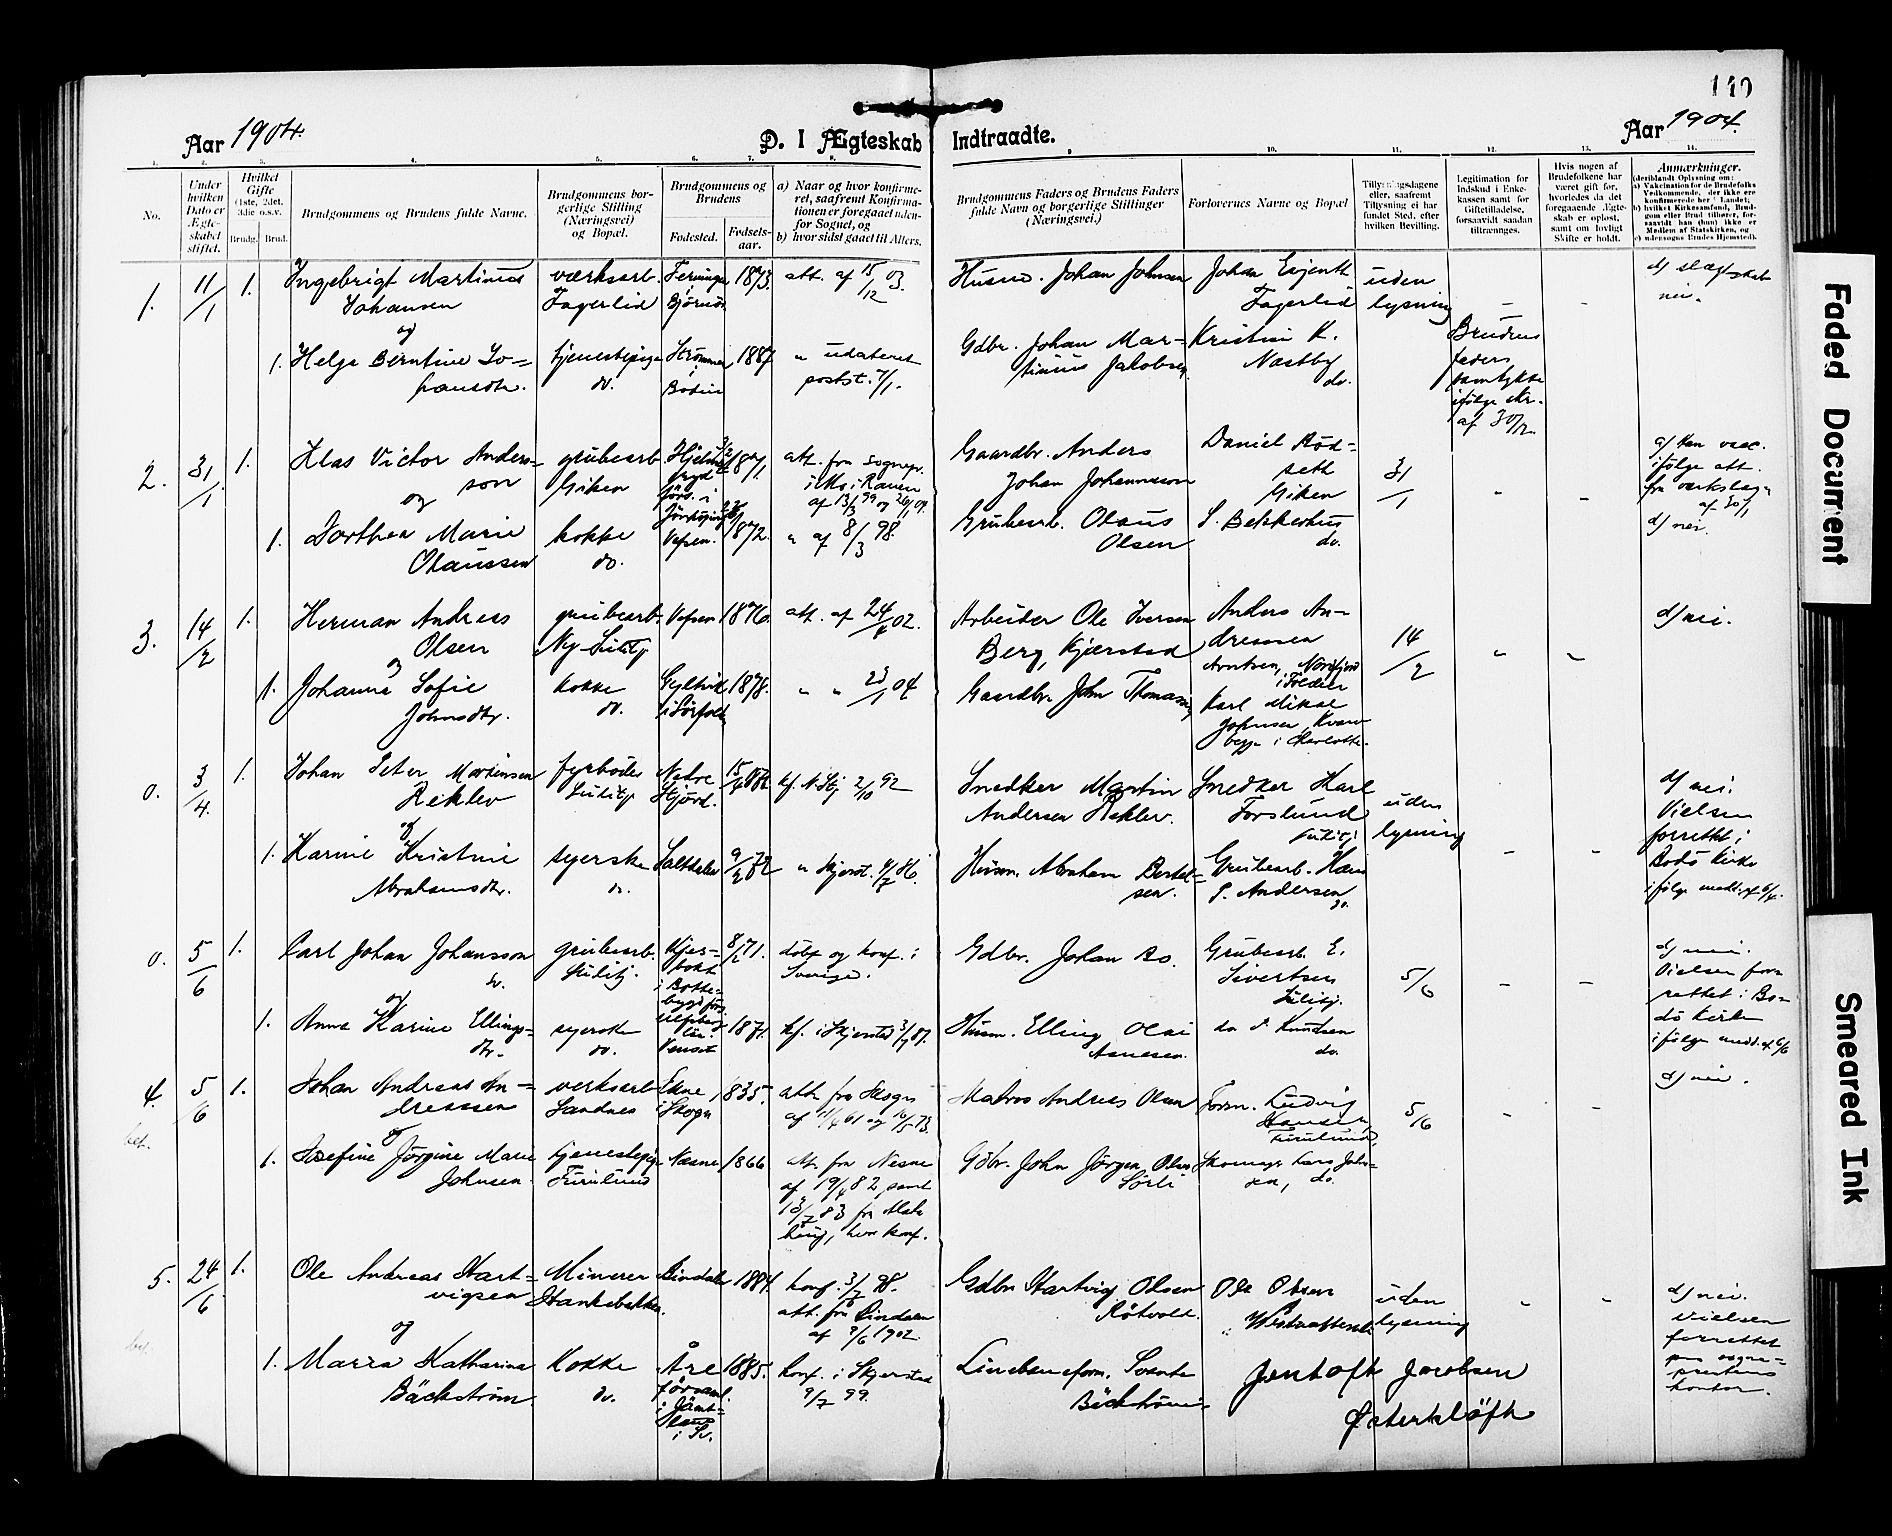 140
Aar 1904.
D. I Ægteskab Indtraadte.
Aar 1904.
1. 2. 3. 4. 5. 6. 7. 8. 9. 10. 11. 12. 13. 14.
No.
Under hvilken Dato er Ægteskabet stiftet.
Hvilket Gifte (1ste, 2det, 3die o.s.v.
Brudg. Brud.
Brudgommens og Brudens fulde Navne.
Brudgommens borgerlige Stilling (Næringsvei) og Bopæl.
Brudgommens og Brudens
Fødested. Fødselsaar.
a) Naar og hvor konfirmeret, saafremt Konfirmationen er foregaaet udenfor Sognet, og
b) hvor sidst gaaet til Alters.
Brudgommens Faders og Brudens Faders fulde Navn og borgerlige Stillinger (Næringsvei.)
Forlovernes Navne og Bopæl
Tillysningsdagene eller, saafremt Tillysning ei har fundet Sted, efter hvilken Bevilling.
Legitimation for Indskud i Enkekassen samt for Giftetilladelse, forsaavidt saadan tiltrænges.
Hvis nogen af Brudefolkene har været gift før, hvorledes da det foregaaende Ægteskab er opløst, samt om lovligt Skifte er holdt.
Anmærkninger.
1. 11/1 1. Ingebrigt Martinus
Johansen
og
værksarb.
Fagerlid
1873. att. af 15/12 03.
Husm. Johan Johnsen
Johan Evjenth
Fagerlid
uden
lysning
d/ slægtskab
nei.
1. Helga Berntine Jo-
hansdtr.
tjenestepige
do.
Strømmen
i
Bodin
1887 " udateret
postst. 7/1.
Gdbr. Johan Mar-
tinius Jakobsen
Kristian K.
Næstby
do.
Brudens
faders
samtykke
ifølge skr.
af 30/12.
2. 31/1. 1. Klas Victor Anders-
son
og
grubearb.
Giken
1871.
att. fra sognepr.
i Mo i Ranen
af 13/3 99 og 26/1 04.
Gaardbr. Anders
Johan Johannsson
Daniel Rød-
seth
Giken
31/1
a/ Han vacc.
ifølge att.
fra værkslæge
af 30/1
d/ nei.
1. Dorthea Marie
Olaussen
kokke
do.
Vefsen. 1872. " af 8/3 98.
Grubearb. Olaus
Olsen
S. Bekkerhus
do.
3. 14/2 1. Herman Andreas
Olsen
og
grubearb.
Ny-Sulitj.
Vefsen 1876. att. af 24/4 02.
Arbeider Ole Iversen
Berg, Kjærstad
Anders An-
dreassen
14/2
d/ nei.
1. Johanna Sofie
Johnsdtr.
kokke
do.
Gyltvik
i Sørfold
1878. " " 23/1 04
Gaardbr. John Thomassen
Karl Mikal
Johnsen
0. 3/4. 1. Johan Peter Martinsen
Reklev
og
fyrbøder
Sulitj.
Nedre
Stjørd.
kf. N. Stj 2/10 92
Snedker Martin
Andersen Reklev.
Snedker Karl
Forslund
Sulitj.
uden
lysning
d/ nei.
Vielsen
forrettet i
Bodø kirke
ifølge medd. af 6/4.
1. Karine Kristine
Abrahamsdtr.
syerske
do.
Saltdalen 9/2 72 " Skjerst. 4/7 86.
Husm. Abraham Bertel-
sen.
Grubearb. Hans
P. Andersen
do.
0. 5/6 1. Carl Johan Johansson
og
grubearb.
Sulitj.
8/6 71. døbt og konf. i
Sverige.
Gdbr. Johan Bo.
Grubearb. E.
Sivertsen
Sulitj.
5/6
d/ nei.
Vielsen for-
rettet i Bo-
dø kirke
ifølge medd. af 6/6
1. Anna Karine Ellings-
dtr.
syerske
do.
1871. kf. i Skjerstad 3/7 87.
Husm. Elling Olai
Asnesen.
do. P. Knudsen
do.
4. 5/6 1. Johan Andreas An-
dreassen
og
verksarb.
Sandnes
Ekne
i Skogn
1835. att. fra Skogn
Matros Andreas Olsen
Form. Ludvig
Hansen,
Furulund,
5/6
d/ nei.
bet.
1. Josefine Jørgine Marie
Johnsen
tjenestepige
Furulund
Næsne 1866 att. fra Nesne
af 19/4 82 samt
13/7 83 fra Alsta-
haug, hvor konf.
Gdbr. John Jørgen Olsen
Sørli
Skomager Lars John-
sen, do.
5. 24/6 1. Ole Andreas Hart-
vigsen
og
Minerer
Hankebakken
Bindalen 1884. konf. 3/7 98.
att. fra Bindalen
af 9/6 1902.
Gdbr Hartvig Olsen
Røtvolt.
Ole Olsen
uden
lysning
d/ nei.
Vielsen
forrettet
paa sogne-
prestens
kontor.
bet.
1. Maria Katharina
Bäckström
Kokke
do.
Åre
församl.
i Jämt-
land
i Sv.
1885. konf. i Skjerstad
9/7 99.
Linebaneform. Svante
Bäckström
Jentoft Jacobsen
Østerkløft
Faded Document
Smeared Ink